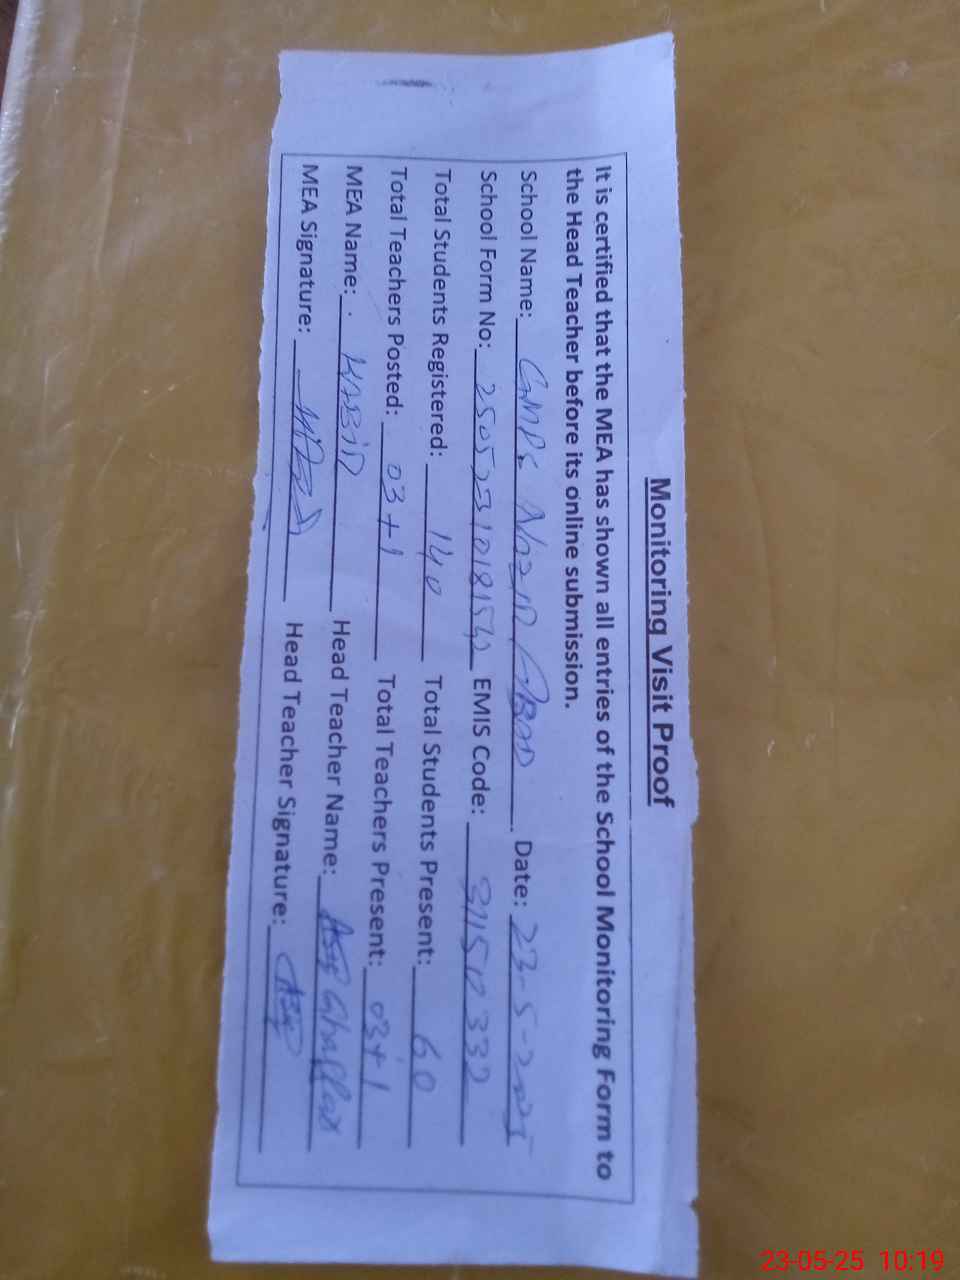 Monitoring Visit Proof
It is certified that the MEA has shown all entries of the School Monitoring Form to
the Head Teacher before its online submission.
School Name: GMPS Nazir Abad Date: 23-5-2025
School Form No: EMIS Code: 31150332
Total Students Registered: 140 Total Students Present: 60
Total Teachers Posted: 03+1 Total Teachers Present: 03+1
MEA Name: KABIR Head Teacher Name: Asif Ghaffar
MEA Signature: Head Teacher Signature: Asif
23-05-25 10:19